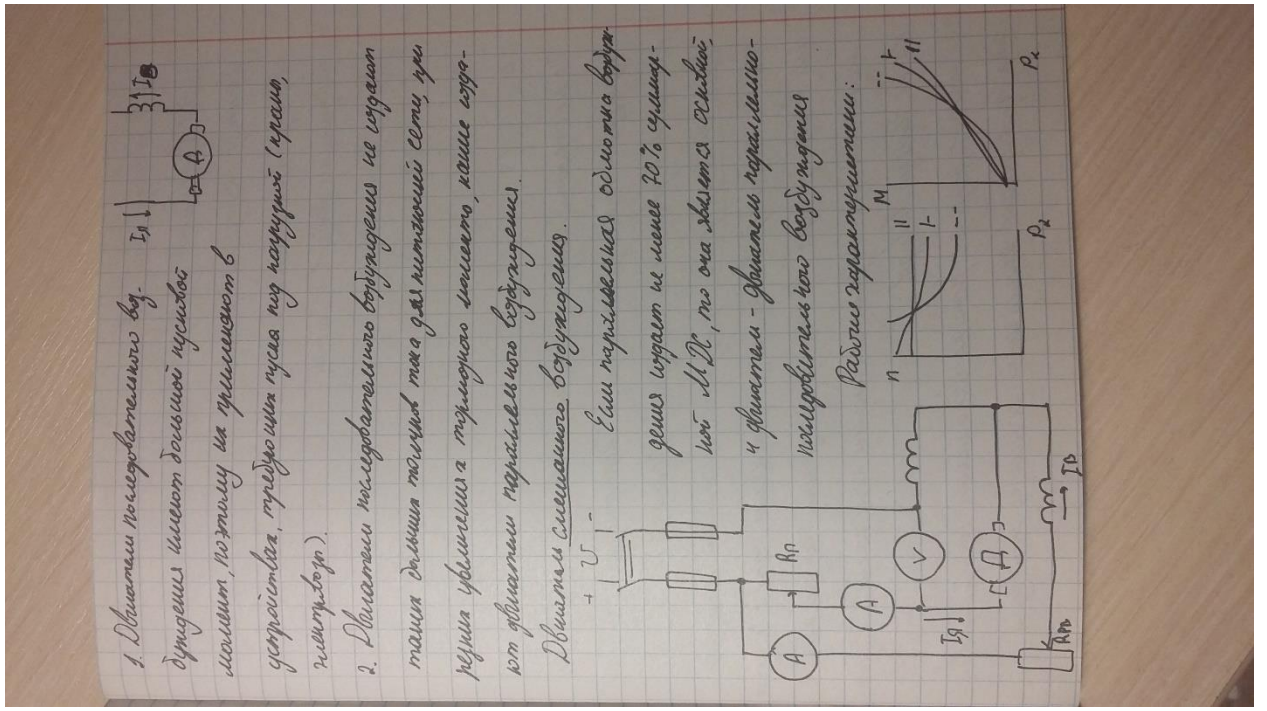 1. Двигатели последовательного воз-
буждения имеют большой пусковой
момент, поэтому их применяют в
устройствах, требующих пуска под нагрузкой (краны,
электровозы).
Iя
Д
Iв
2. Двигатели последовательного возбуждения не создают
таких больших толчков тока для питающей сети, при
резких увеличениях тормозного момента, какие созда-
ют двигатели параллельного возбуждения.
Двигатель смешанного возбуждения.
Если параллельная обмотка возбуж-
дения создает не менее 70% суммар-
ной МДС, то она является основной,
и двигатель - двигатель параллельно-
последовательного возбуждения
Рабочие характеристики:
+ U -
Rп
A
A
V
Iя
Д
Rрв
Iв
n
P2
M
P2